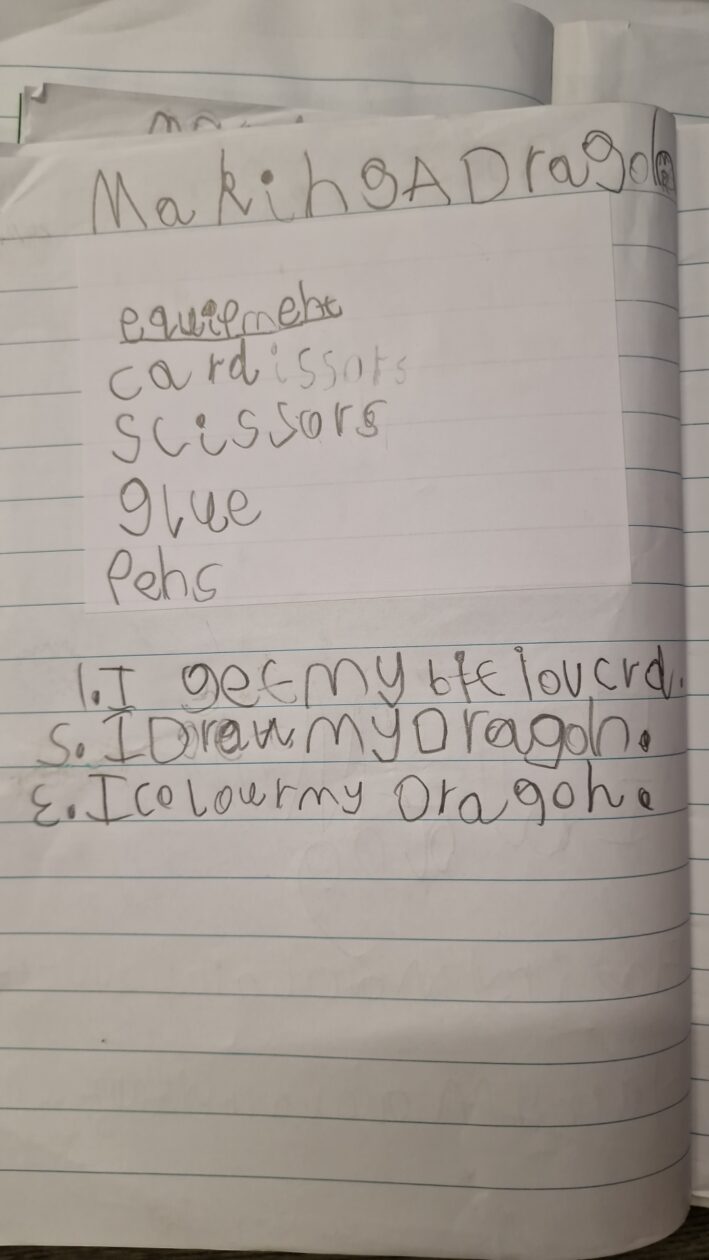 Making A Dragon
equipment
cardissors
scissors
glue
Pens
1. I get my crd.
2. I Draw my Dragon.
3. I colour my Dragon.